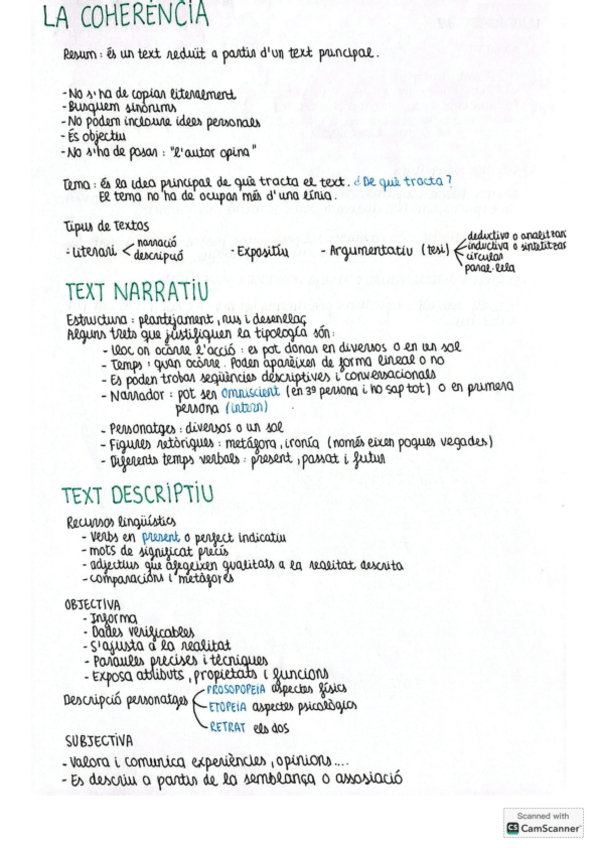 LA COHERÈNCIA
Resum : és un text reduït a partir d'un text principal.
- No s'ha de copiar literalment
- Busquem sinònims
- No podem incloure idees personals
- És objectiu
- No s'ha de posar : "l'autor opina"
Tema : és la idea principal de què tracta el text. ¿De què tracta?
El tema no ha de ocupar més d'una línia.
Tipus de textos
- Literari < narració
descripció
- Expositiu
- Argumentatiu (tesi)
deductiva o analitzar
inductiva o sintetitzar
circular
paral·lela
TEXT NARRATIU
Estructura : plantejament, nus i desenllaç
Alguns trets que justifiquen la tipologia són:
- Lloc on ocórre l'acció : es pot donar en diversos o en un sol
- Temps : quan ocórre. Poden aparèixer de forma lineal o no
- Es poden trobar seqüències descriptives i conversacionals
- Narrador : pot ser omniscient (en 3ª persona i ho sap tot) o en primera
persona (intern)
- Personatges : diversos o un sol
- Figures retòriques : metàfora, ironia (només eixen poques vegades)
- Diferents temps verbals : present, passat i futur
TEXT DESCRIPTIU
Recursos lingüístics
- Verbs en present o perfect indicatiu
- mots de significat precís
- adjectius que afegeixen qualitats a la realitat descrita
- comparacions i metàfores
OBJECTIVA
- Informa
- Dades verificables
- S'ajusta a la realitat
- Paraules precises i tècniques
- Exposa atributs, propietats i funcions
Descripció personatges
PROSOPOPEIA aspectes físics
ETOPEIA aspectes psicològics
RETRAT els dos
SUBJECTIVA
- Valora i comunica experiències, opinions....
- Es descriu a partir de la semblança o assosiació
Scanned with
CS CamScanner